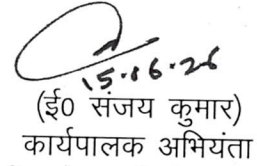 15.06.26
(ई0 संजय कुमार)
कार्यपालक अभियंता